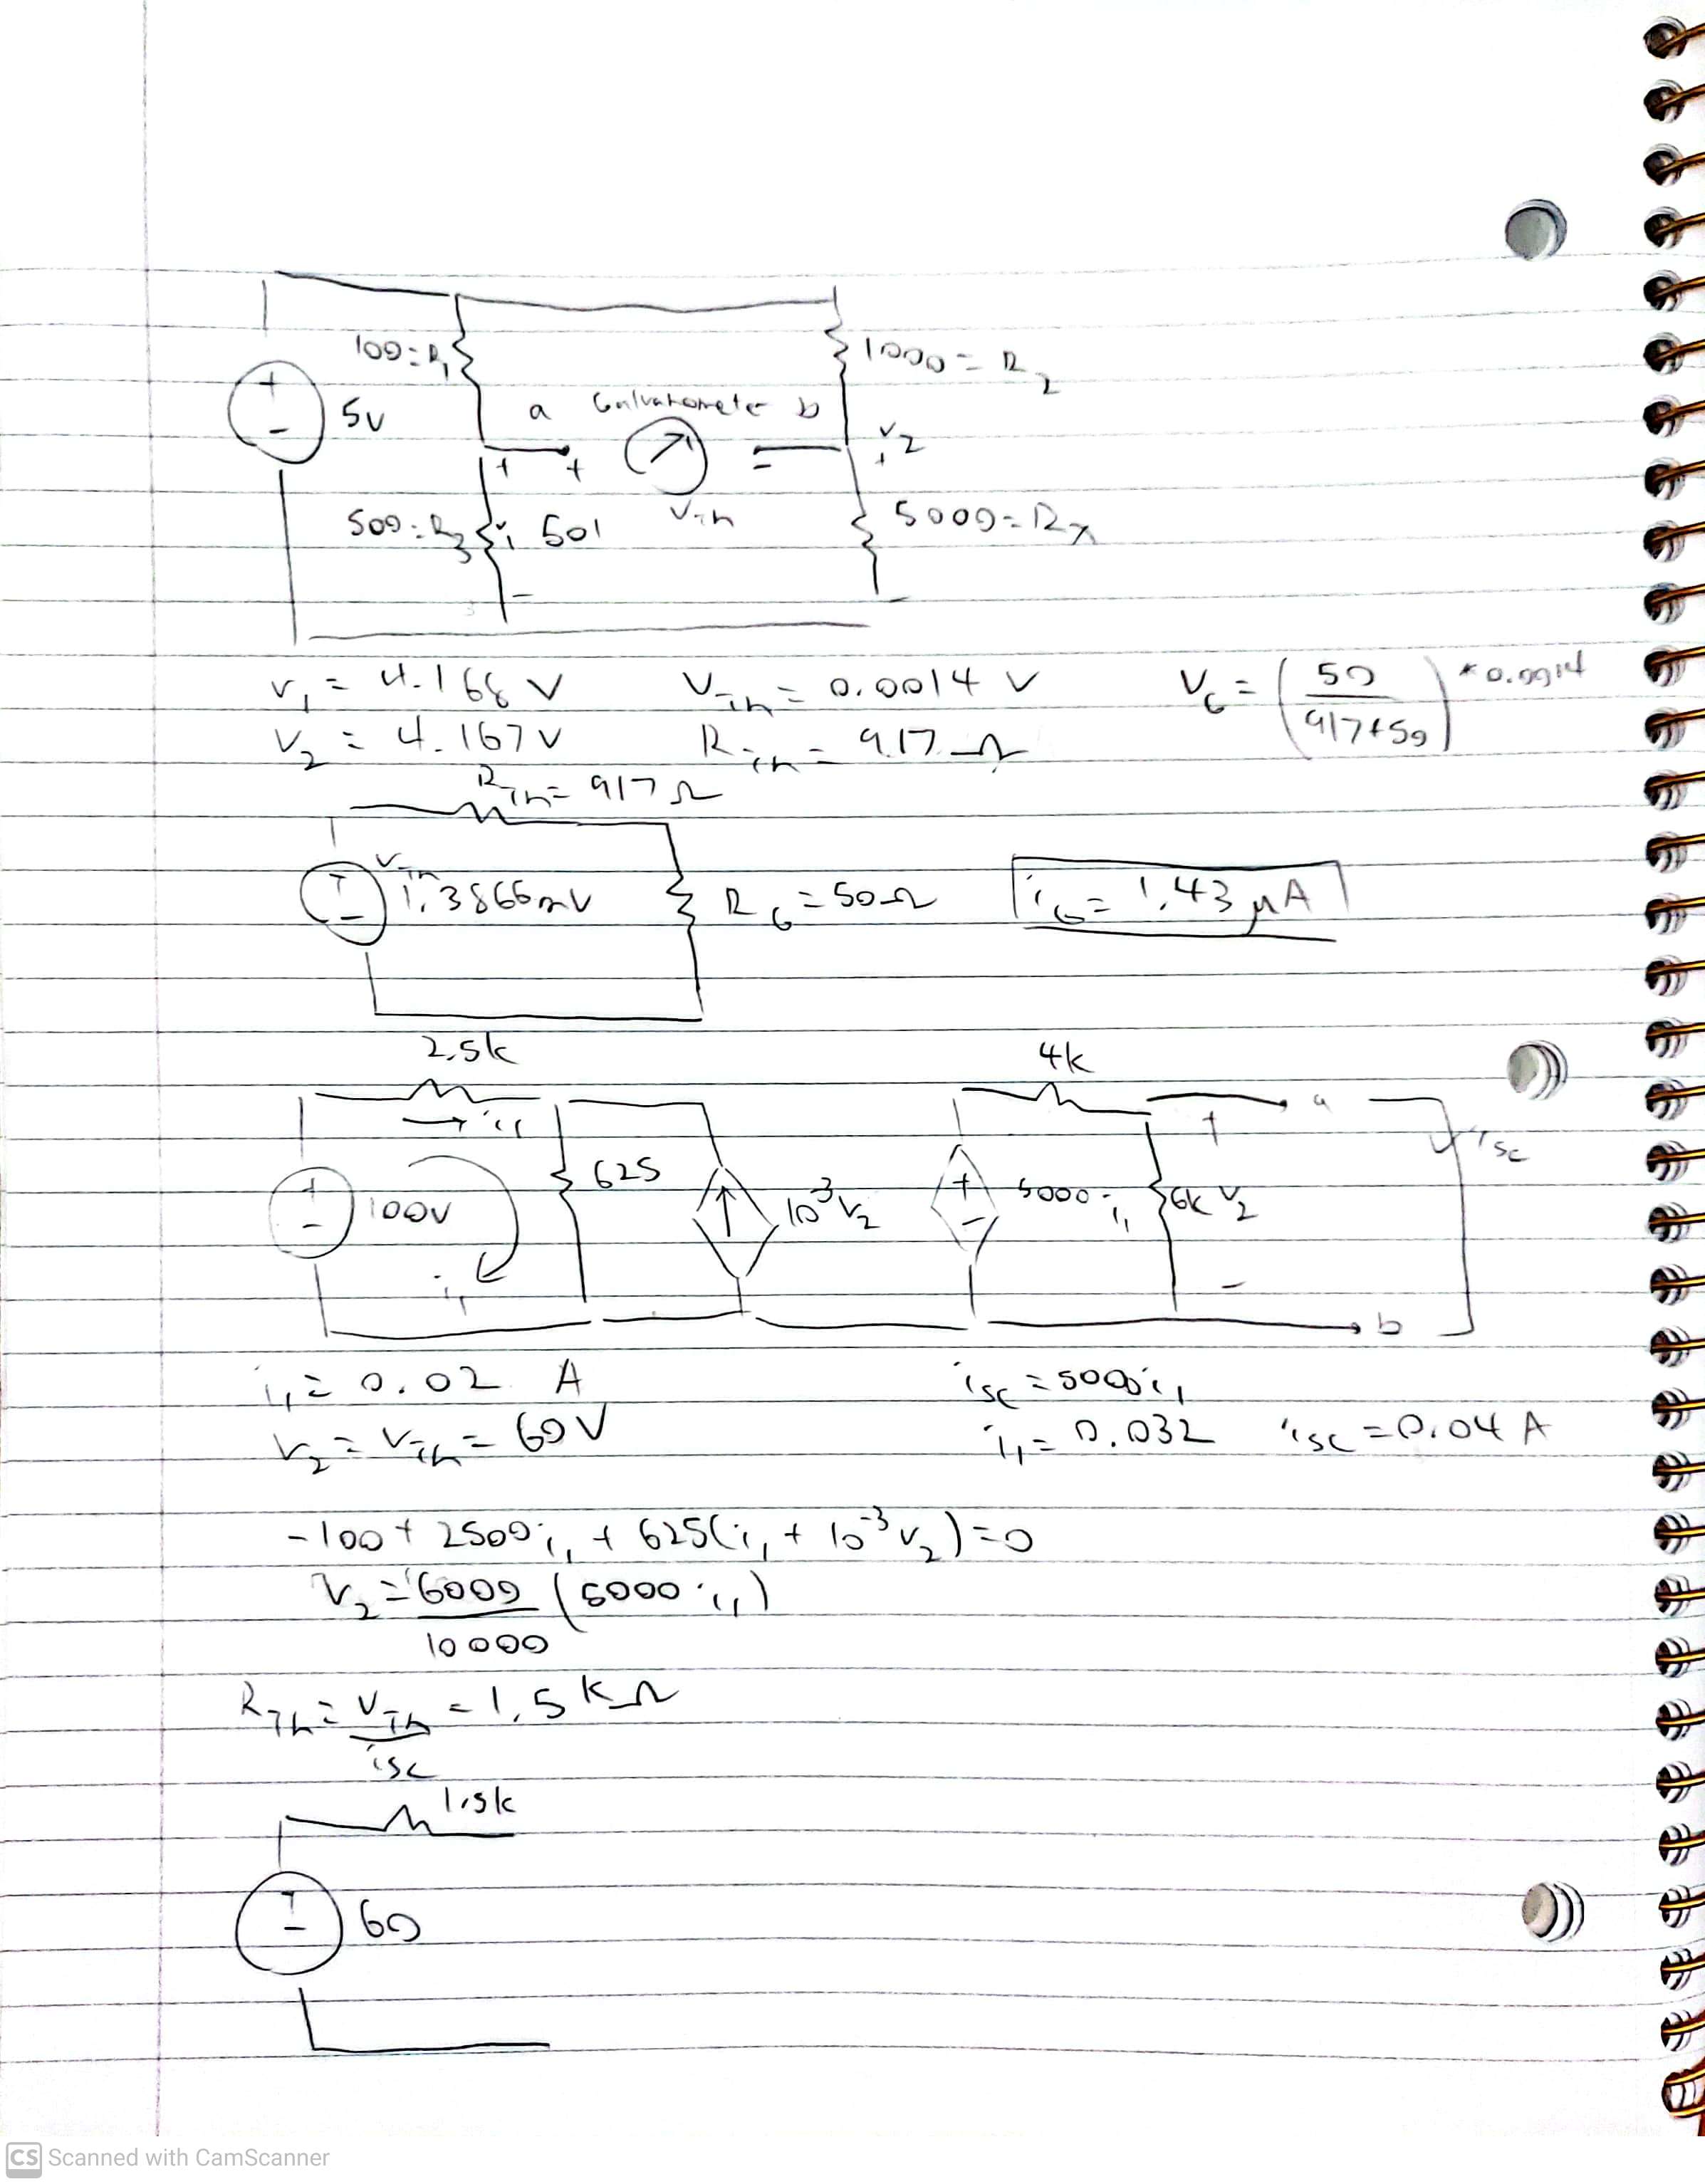 100=R₁
1000=R₂
5v
a Galvanometer b
+ + - v₂ +
500=R₃ v₁ 501 VTh 5000=Rx
-
v₁ = 4.168 V VTh = 0.0014 V VG = (50/(917+50)) * 0.0014
V₂ = 4.167 V RTh = 917 Ω
RTh = 917 Ω
VTh
1.3866mV RG = 50Ω iG = 1.43 μA
2.5k 4k
→ i₁ + a isc
625
100V 10⁻³ V₂ 5000 i₁ 6k V₂
i₁ - b
i₁ = 0.02 A isc = 5000i₁
V₂ = VTh = 60V i₁ = 0.032 isc = 0.04 A
-100 + 2500i₁ + 625(i₁ + 10⁻³v₂) = 0
V₂ = 6000/10000 (5000 i₁)
RTh = VTh/isc = 1.5 kΩ
1.5k
60
CS Scanned with CamScanner